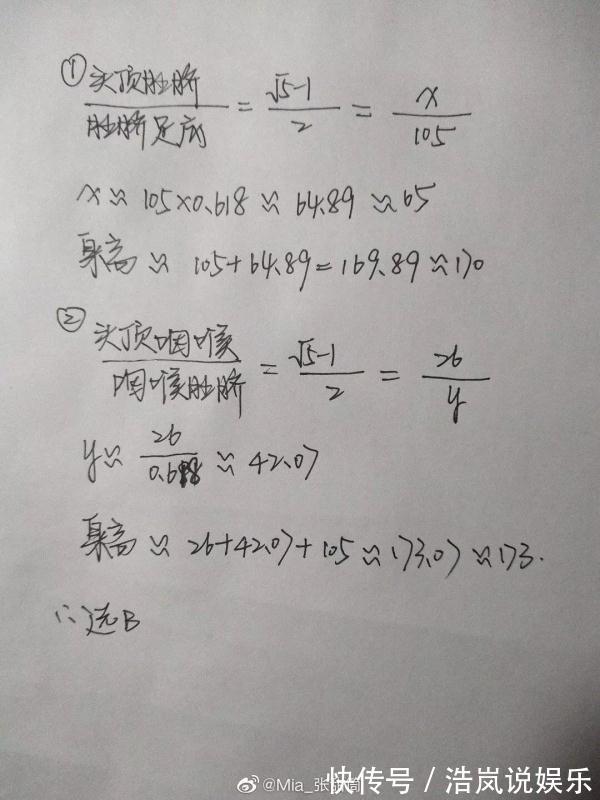 ① 头顶肚脐/肚脐足底 = (√5-1)/2 = x/105
x ≈ 105×0.618 ≈ 64.89 ≈ 65
身高 ≈ 105+64.89=169.89≈170
② 头顶咽喉/咽喉肚脐 = (√5-1)/2 = 26/y
y ≈ 26/0.618 ≈ 42.07
身高 ≈ 26+42.07+105≈173.07≈173.
∴选B
@Mia_张
快传号/浩岚说娱乐